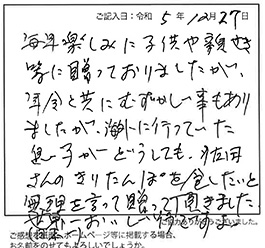 ご記入日：令和 5 年 12月27日
海年楽しみに子供や親せき
等に贈っておりましたが、
年令と共にむずかしい事もあり
ましたが、海外に行っていた
息子がどうしても、佐田
さんのきりたんぽを食したいと
無理を言って贈って頂きました
世界一おいしい
ご感想をホームページ等に掲載する場合、
お名前をのせてもよろしいでしょうか。
ございました。